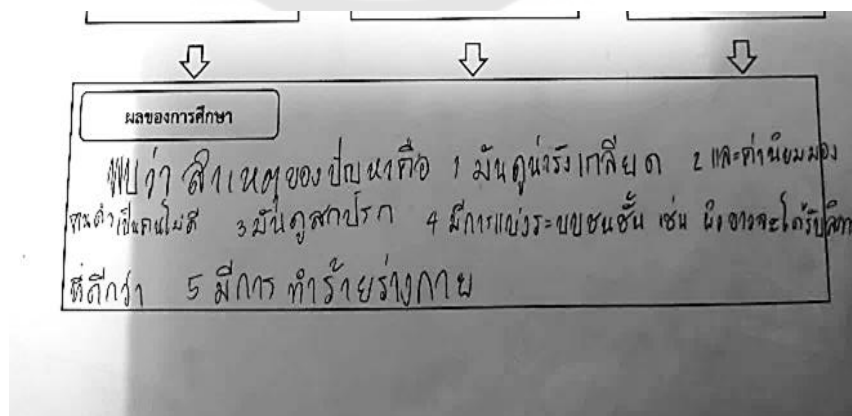 ผลของการศึกษา
พบว่า สาเหตุของปัญหาคือ 1 มันดูน่ารังเกลียด 2 และค่านิยมมอง
คนดำเป็นคนไม่ดี 3 มันดูสกปรก 4 มีการแบ่งระบบชนชั้น เช่น อาจจะได้รับ
ที่ดีกว่า 5 มีการ ทำร้ายร่างกาย